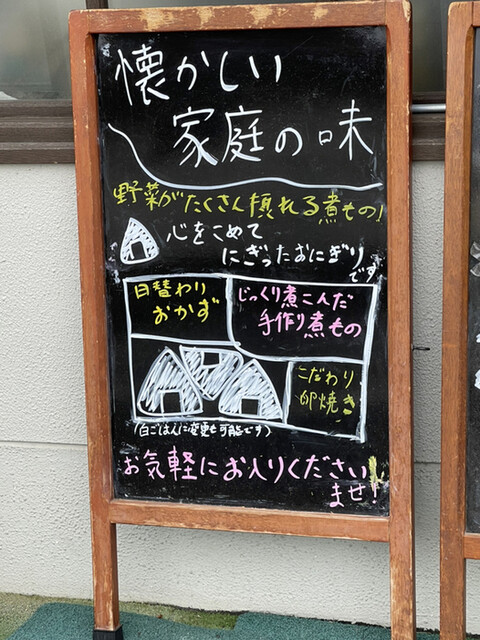 懐かしい
家庭の味
野菜がたくさん摂れる煮もの!
心をこめて
にぎったおにぎり
です
日替わり
おかず
じっくり煮こんだ
手作り煮もの
こだわり
卵焼き
(白ごはんに変更も可能です)
お気軽にお入りください
ませ!